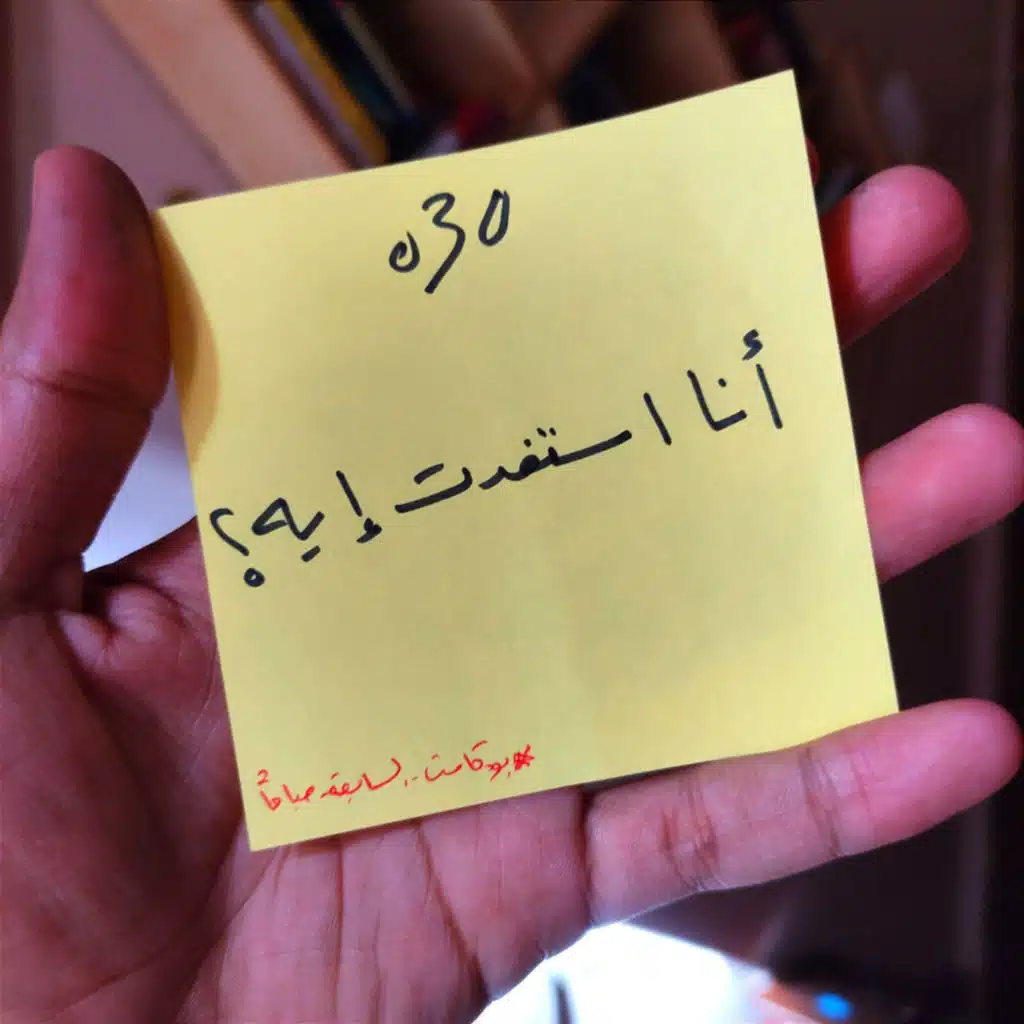 030
أنا استفدت إيه؟
*بودكاست.. السابعة صباحاً